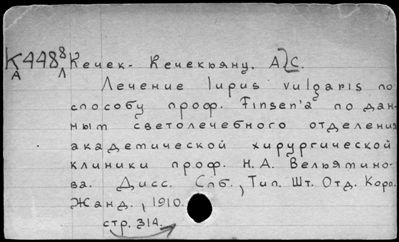 К448⁸ Кечек-Кечекьянц. А. С.
А Л
Лечение lupus vulgaris по
способу проф. Finsen'а по дан-
ным светолечебного отделения
академической хирургической
клиники проф. Н.А. Вельямино-
ва. Дисс. Спб., Тип. Шт. Отд. Корп.
Жанд., 1910.
стр. 314.